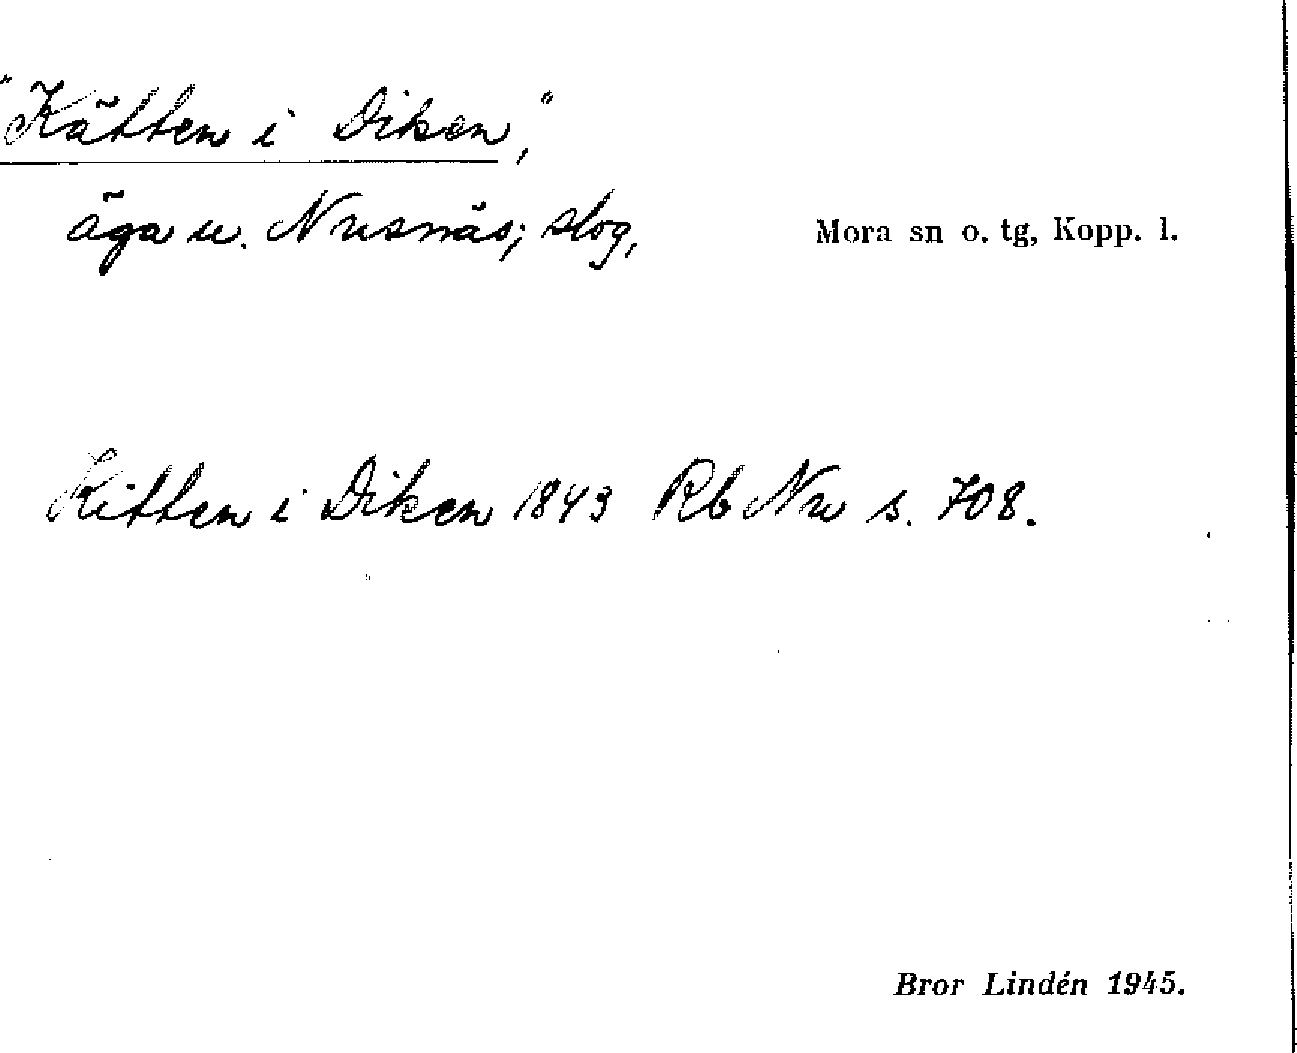 "Kätten i Diken,"
äga u. Nusnäs; slog,
Mora sn o. tg, Kopp. l.
Kitten i Diken 1843 Rb Nu s. 708.
Bror Lindén 1945.